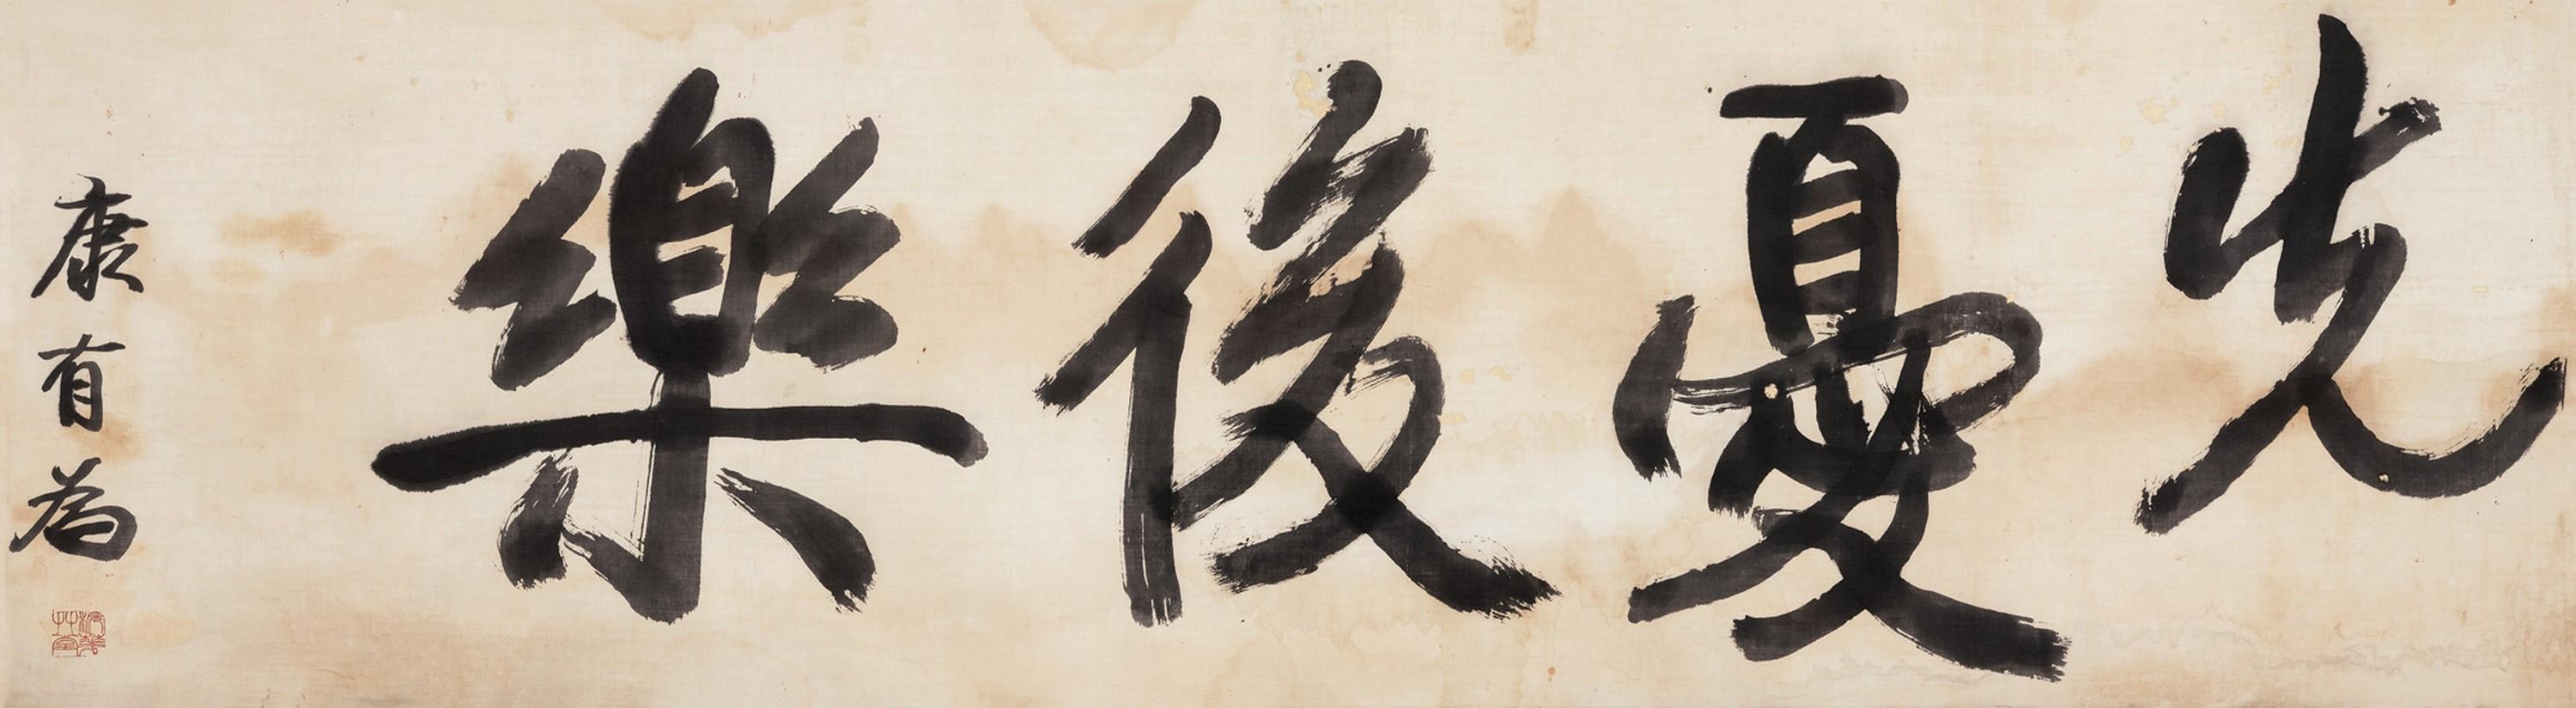 先憂後樂
康有為